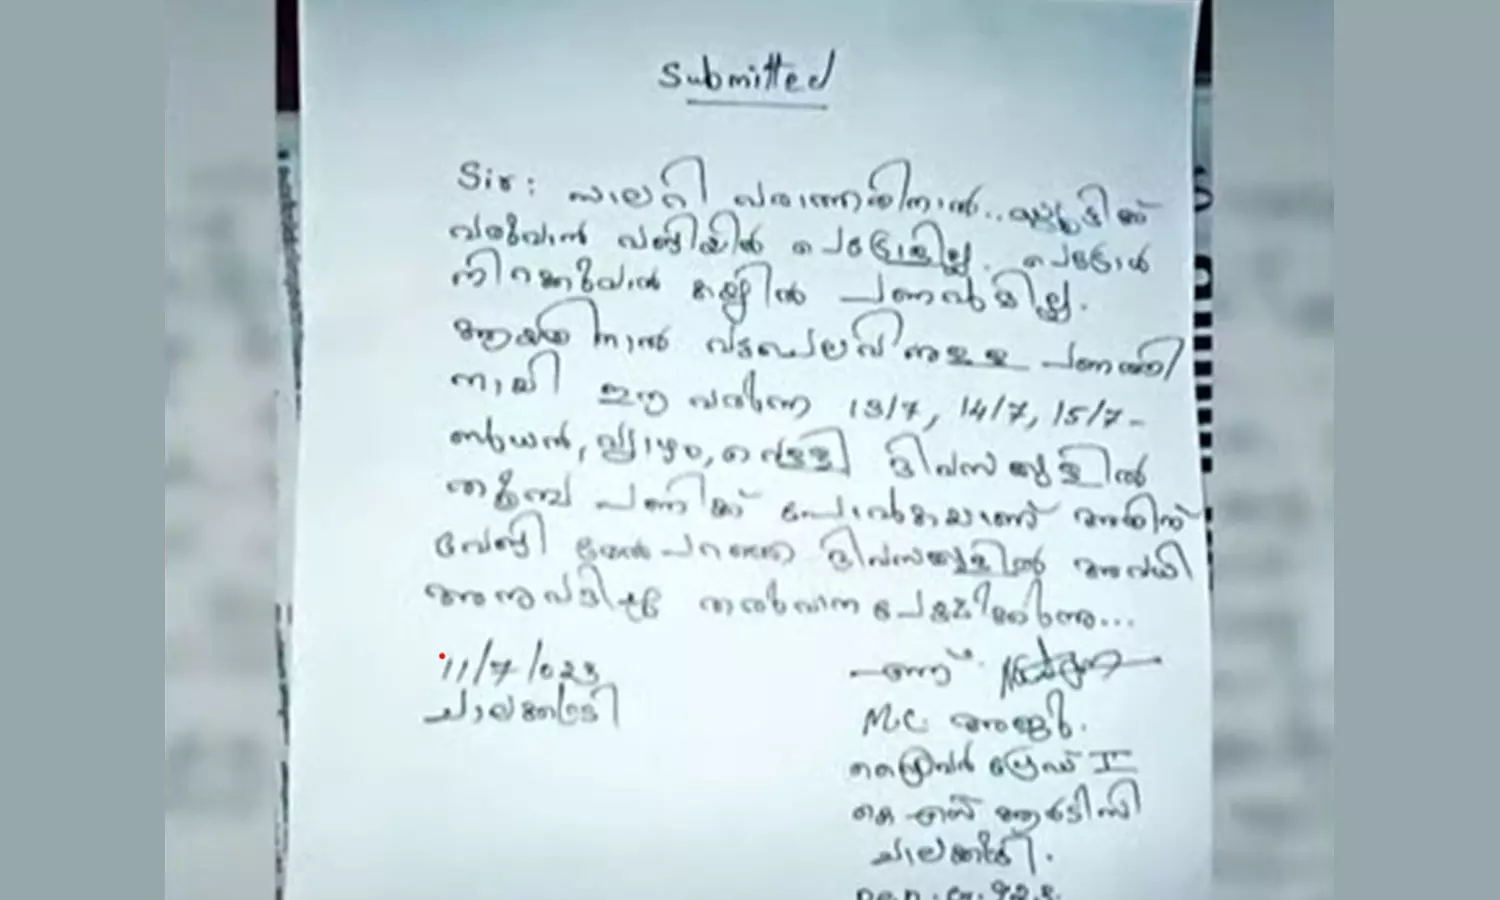 Submitted
Sir: സാലറി വരാത്തതിനാൽ.. ഡ്യൂട്ടിക്ക്
വരുവാൻ വണ്ടിയിൽ പെട്രോളില്ല. പെട്രോൾ
നിറക്കുവാൻ കയ്യിൽ പണവുമില്ല.
ആയതിനാൽ വട്ടചിലവിനുള്ള പണത്തി
നായി ഈ വരുന്ന 13/7, 14/7, 15/7-
ബുധൻ, വ്യാഴം, വെള്ളി ദിവസങ്ങളിൽ
തൂമ്പ പണിക്ക് പോവുകയാണ് അതിന്
വേണ്ടി മേൽപറഞ്ഞ ദിവസങ്ങളിൽ അവധി
അനുവദിച്ചു തരുവാൻ അപേക്ഷിക്കുന്നു...
11/7/023
ചാലക്കുടി
എന്ന്
M.C. അജു.
ഡ്രൈവർ ഗ്രേഡ് I
കെ എസ് ആർടിസി
ചാലക്കുടി.